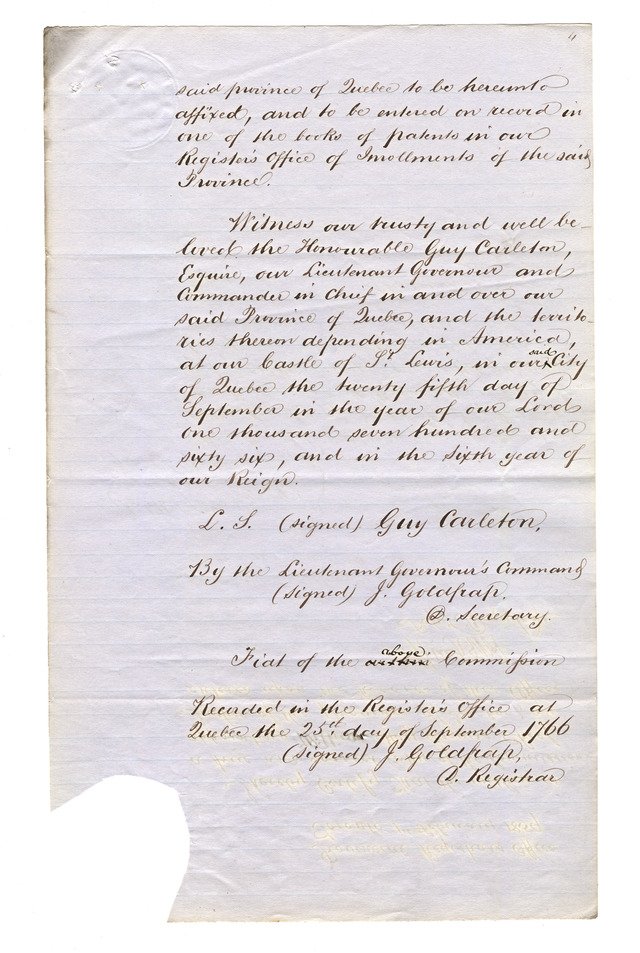 4
said province of Quebec to be hereunto
affixed, and to be entered on record in
one of the books of patents in our
Register's Office of Inrollments of the said
Province.
Witness our trusty and well be-
loved the Honourable Guy Carleton,
Esquire, our Lieutenant Governour and
Commander in Chief in and over our
said Province of Quebec, and the territo-
ries thereon depending in America,
at our Castle of St. Lewis, in our said City
of Quebec the twenty fifth day of
September in the year of our Lord
one thousand seven hundred and
sixty six, and in the sixth year of
our Reign.
L. S. (signed) Guy Carleton,
By the Lieutenant Governour's Command
(signed) J. Goldfrap.
D. Secretary.
Fiat of the above Commission
Recorded in the Register's Office at
Quebec the 25th day of September 1766
(signed) J. Goldfrap,
D. Registrar